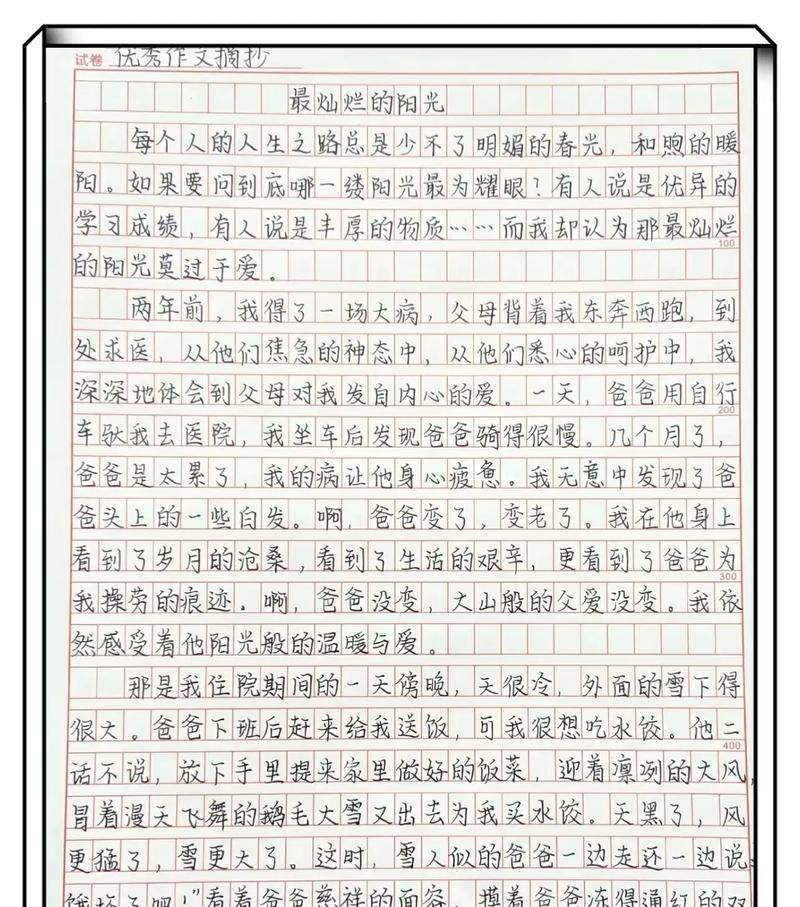 试卷 优秀作文摘抄
最灿烂的阳光
每个人的人生之路总是少不了明媚的春光，和煦的暖
阳。如果要问到底哪一缕阳光最为耀眼？有人说是优异的
学习成绩，有人说是丰厚的物质……而我却认为那最灿烂
100
的阳光莫过于爱。
两年前，我得了一场大病，父母背着我东奔西跑，到
处求医，从他们焦急的神态中，从他们悉心的呵护中，我
深深地体会到父母对我发自内心的爱。一天，爸爸用自行
200
车驮我去医院，我坐车后发现爸爸骑得很慢。几个月了，
爸爸是太累了，我的病让他身心疲惫。我无意中发现了爸
爸头上的一些白发。啊，爸爸变了，变老了。我在他身上
看到了岁月的沧桑，看到了生活的艰辛，更看到了爸爸为
300
我操劳的痕迹。啊，爸爸没变，大山般的父爱没变。我依
然感受着他阳光般的温暖与爱。
那是我住院期间的一天傍晚，天很冷，外面的雪下得
很大。爸爸下班后赶来给我送饭，可我很想吃水饺。他二
400
话不说，放下手里提来家里做好的饭菜，迎着凛冽的大风，
冒着漫天飞舞的鹅毛大雪又出去为我买水饺。天黑了，风
更猛了，雪更大了。这时，雪人似的爸爸一边走还一边说：
饿坏了吧！”看着爸爸慈祥的面容，摸着爸爸冻得通红的双